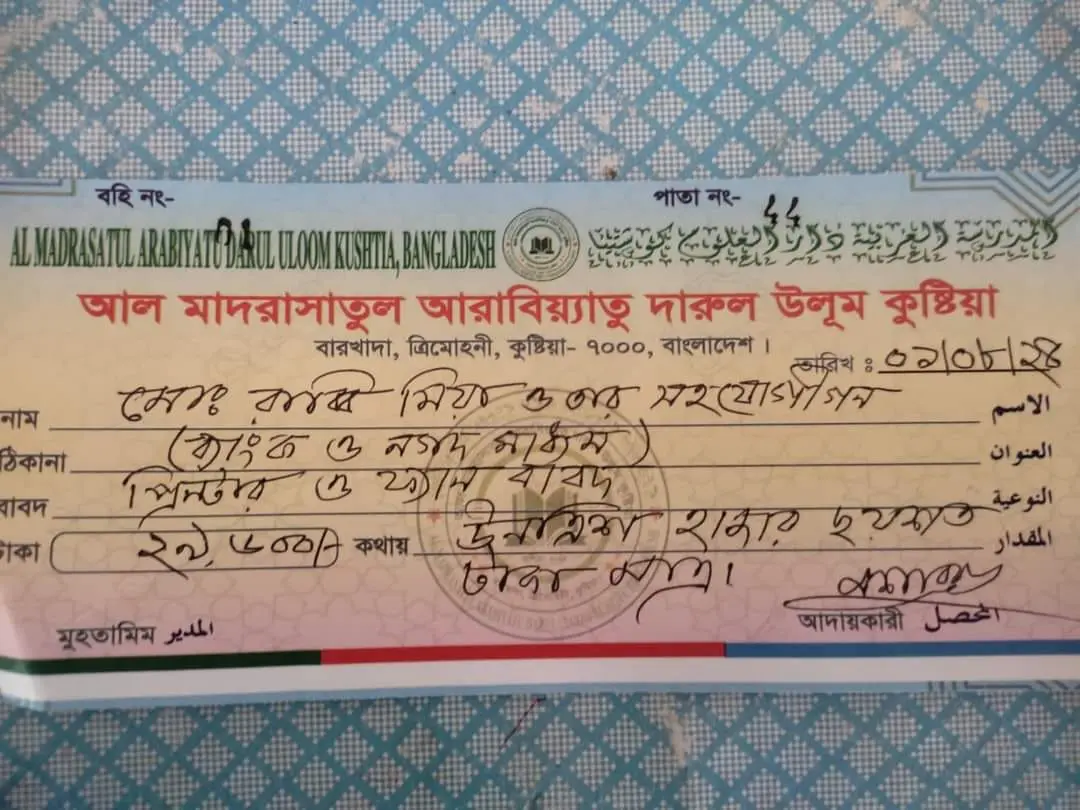 বহি নং- পাতা নং-
AL MADRASATUL ARABIYATU DARUL ULOOM KUSHTIA, BANGLADESH المدرسة العربية دار العلوم كوشتيا
আল মাদরাসাতুল আরাবিয়্যাতু দারুল উলূম কুষ্টিয়া
বারখাদা, ত্রিমোহনী, কুষ্টিয়া- ৭০০০, বাংলাদেশ।
তারিখ : ০১/০৮/২৪
নাম মোঃ রাব্বি মিয়া ও তার সহযোগীগন الاسم
ঠিকানা (ব্যাংক ও নগদ মাধ্যম) العنوان
বাবদ প্রিন্টার ও ফ্যান বাবদ النوعية
টাকা ২৯,৬০০/- কথায় উনত্রিশ হাজার ছয়শত المقدار
টাকা মাত্র।
মুহতামিম المدير আদায়কারী المحصل